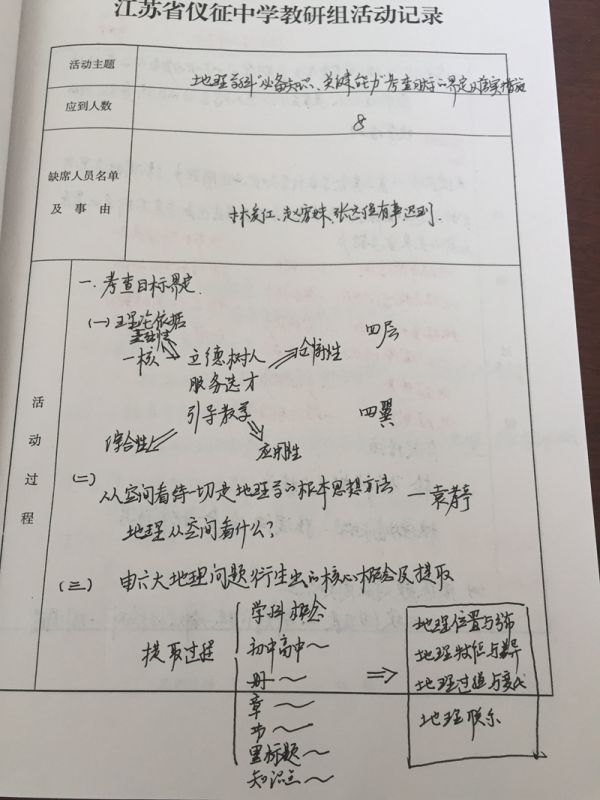 江苏省仪征中学教研组活动记录
活动主题
地理学科“必备知识、关键能力”考查目标的界定及落实措施
应到人数
8
缺席人员名单
及事由
有事迟到.
活动过程
一.考查目标界定.
(一)理论依据
基础性
一核 立德树人 创新性 四层
服务选才
引导教学 四翼
综合性 应用性
(二)
从空间看待一切是地理学的根本思想方法 —袁孝亭
地理从空间看什么?
(三) 由六大地理问题衍生出的核心概念及提取
提取过程
学科概念
初中高中~
册~
章~
节~
黑标题~
知识点~
⇒
地理位置与分布
地理特征与差异
地理过程与变化
地理联系